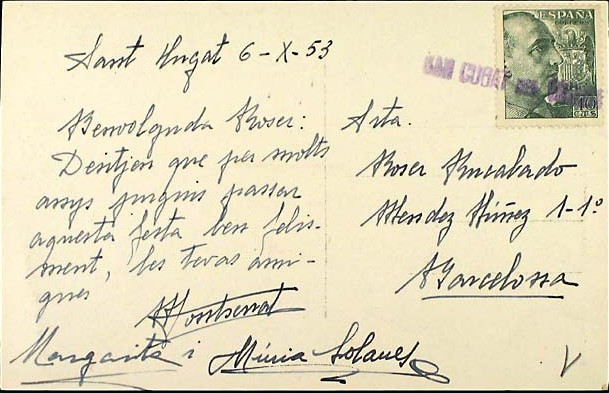 Sant Cugat 6-X-53
Benvolguda Roser:
Desitjem que per molts
anys puguis passar
aquesta festa ben feliç-
ment, les teves ami-
gues
Montserrat
Margarita i Núria Solanes
ESPAÑA
CORREOS
40
CTS
SAN CUGAT DEL
Srta.
Roser
Mendez Núñez 1-1º
Barcelona